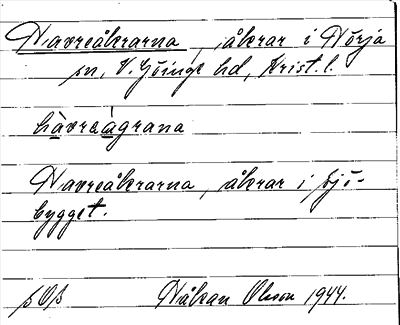 Havreåkrarna, åkrar i Nörja
sn, V. Göinge hd, Krist. l.
hàvreágrana
Havreåkrarna, åkrar i Sjö-
bygget.
Håkan Olsson 1944.